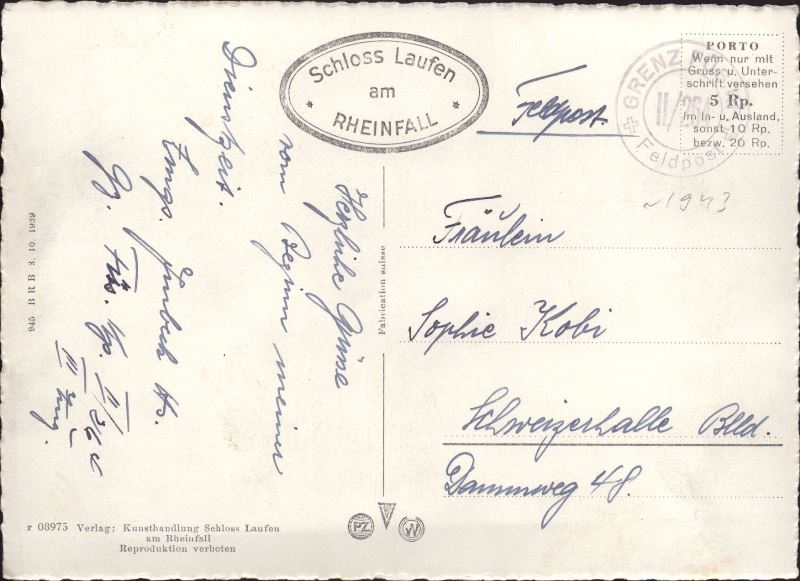 Schloss Laufen
am
* RHEINFALL *
Feldpost.
GRENZ
II/26
Feldpost
PORTO
Wenn nur mit
Gruss u. Unter-
schrift versehen
5 Rp.
im In- u. Ausland,
sonst 10 Rp.
bezw. 20 Rp.
~1943
Herzliche Grüsse
vom Beginn meiner
Dienstzeit.
Hs.
Gz. Füs. Kp. II/26
III Zug.
Fräulein
Sophie Kobi
Schweizerhalle Blld.
Dammweg 48.
Fabrication suisse
945 BRB 3. 10. 1939
r 08975 Verlag: Kunsthandlung Schloss Laufen
am Rheinfall
Reproduktion verboten
PZ
W